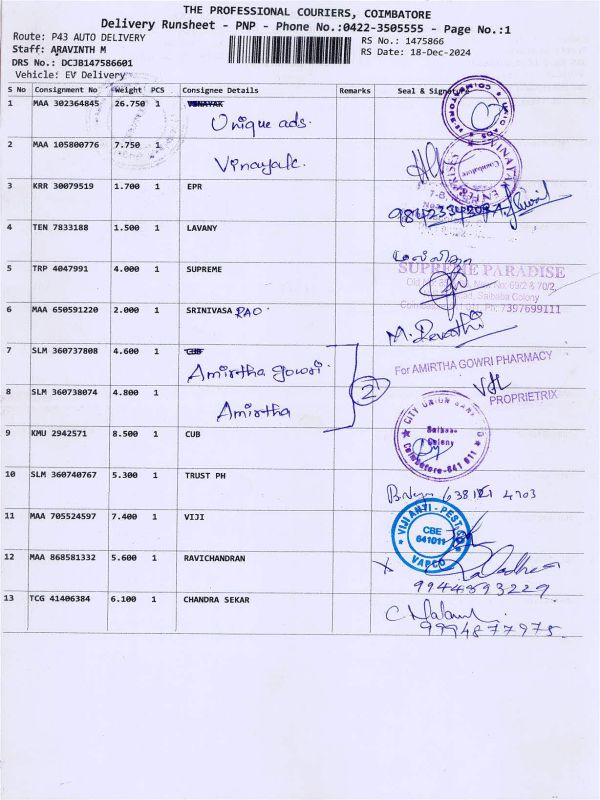 THE PROFESSIONAL COURIERS, COIMBATORE
Delivery Runsheet - PNP - Phone No.:0422-3505555 - Page No.:1
Route: P43 AUTO DELIVERY
RS No.: 1475866
Staff: ARAVINTH M
RS Date: 18-Dec-2024
DRS No.: DCJB147586601
Vehicle: EV Delivery
S No Consignment No Weight PCS Consignee Details Remarks Seal & Signature
1 MAA 302364845 26.750 1 VINAYAK
Unique ads.
2 MAA 105800776 7.750 1
Vinayak.
3 KRR 30079519 1.700 1 EPR
4 TEN 7833188 1.500 1 LAVANY
5 TRP 4047991 4.000 1 SUPREME
SUPREME PARADISE
69/2 & 70/2,
Saibaba Colony
Ph: 7397699111
6 MAA 650591220 2.000 1 SRINIVASA RAO.
M. Revathi
7 SLM 360737808 4.600 1 CUB
Amirtha gowri.
For AMIRTHA GOWRI PHARMACY
PROPRIETRIX
2
8 SLM 360738074 4.800 1
Amirtha
9 KMU 2942571 8.500 1 CUB
CITY UNION BANK
Saibaba
Colony
Coimbatore-641 011
10 SLM 360740767 5.300 1 TRUST PH
11 MAA 705524597 7.400 1 VIJI
VIJI ANTI - PEST
CBE
641011
VAPCO
12 MAA 868581332 5.600 1 RAVICHANDRAN
9944593229
13 TCG 41406384 6.100 1 CHANDRA SEKAR
9994877975.